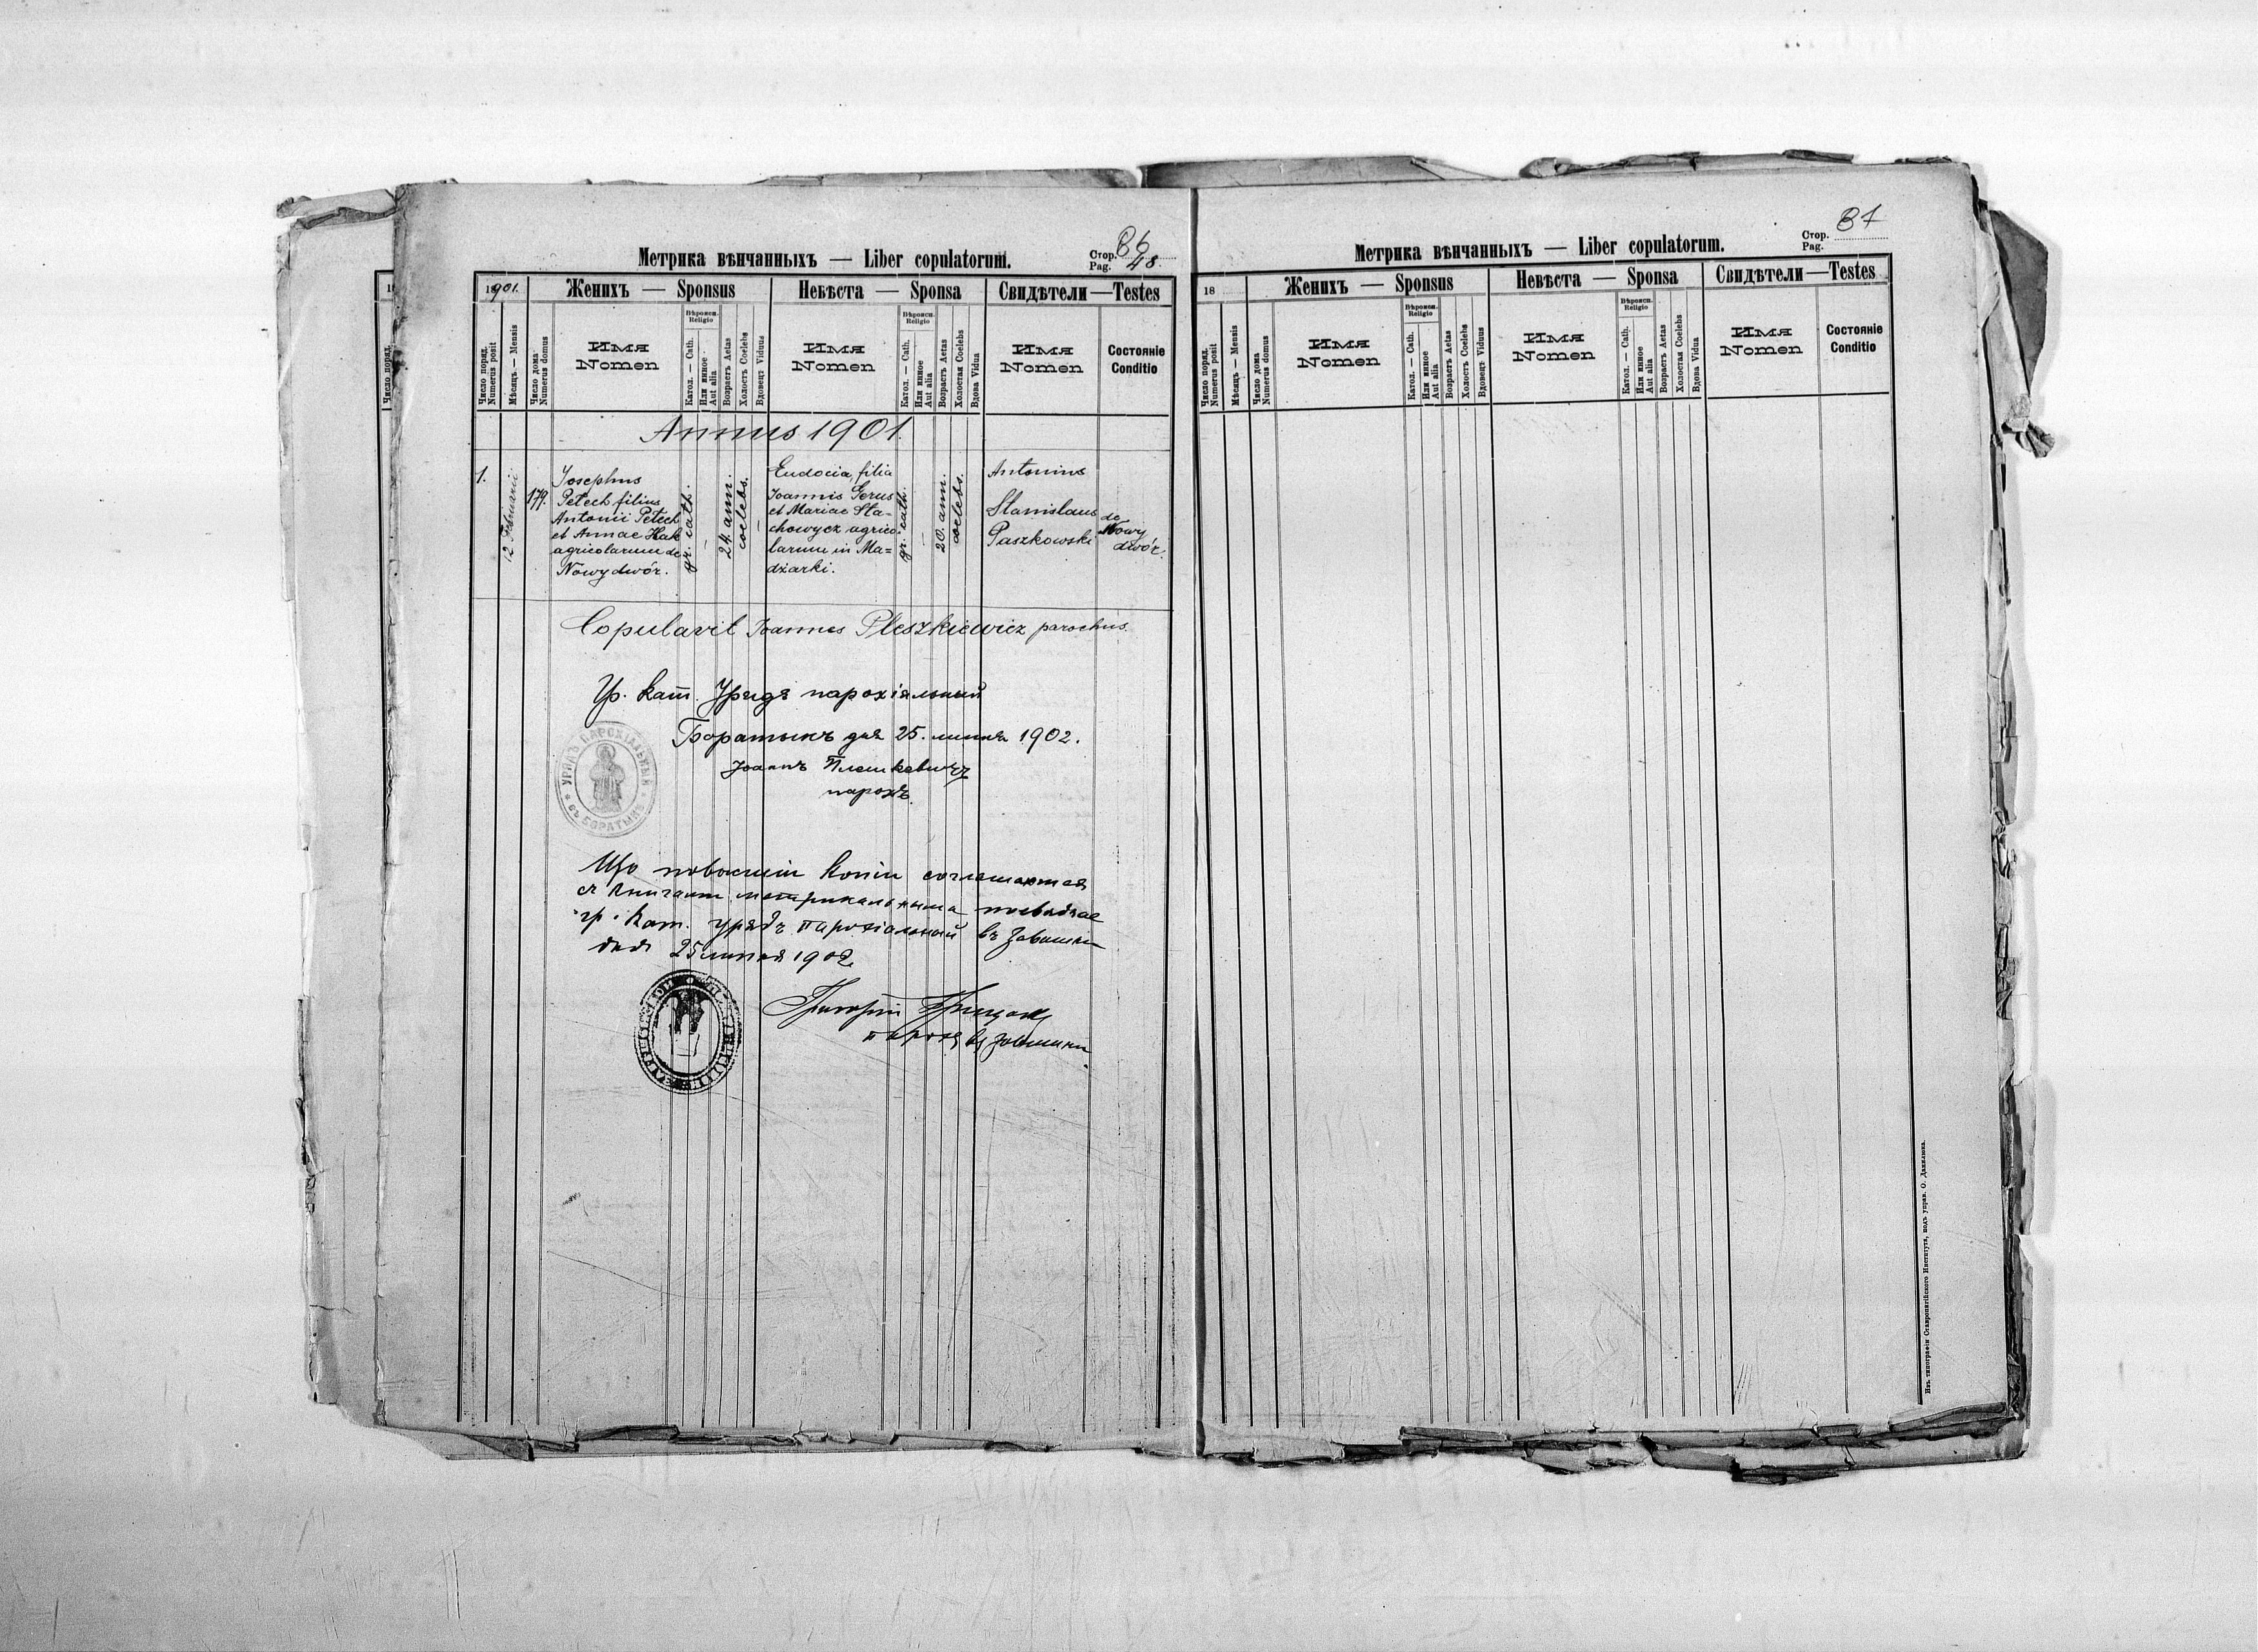 Метрика вѣнчанныхъ — Liber copulatorum.
Стор. Pag. 86 48.
1901.
Женихъ — Sponsus
Невѣста — Sponsa
Свидѣтели — Testes
Число поряд. Numerus posit
Мѣсяцъ — Mensis
Число дома Numerus domus
Имя Nomen
Вѣроисп. Religio
Катол. — Cath.
Или инное Aut alia
Возрастъ Aetas
Холостъ Coelebs
Вдовецъ Viduus
Имя Nomen
Вѣроисп. Religio
Катол. — Cath.
Или инное Aut alia
Возрастъ Aetas
Холостая Coelebs
Вдова Vidua
Имя Nomen
Состояніе Conditio
Annus 1901.
1.
12 Februarii
179.
Josephus
Petech filius
Antonii Petech
et Annae Hak
agricolarum de
Nowydwór.
gr. cath.
24. ann.
coelebs.
Eudocia, filia
Joannis Gerus
et Mariae Sta=
chowycz agrico
larum in Ma=
dżarki.
gr. cath.
20. ann.
coelebs.
Antonius
Stanislaus
Paszkowski
de
Nowy
dwór.
Copulavit Joannes Pleszkiewicz parochus.
Гр. кат. Урядъ парохіяльный
Боратынъ дня 25. липня 1902.
Іоаннъ Плешкевичъ
парохъ.
УРЯДЪ ПАРОХІАЛЬНЫЙ
въ БОРАТЫНѢ
Що повысшіи копіи соглашаются
съ книгами метрикальными посвѣдчае
гр. кат. урядъ парохіальный въ Завишни
дня 25 липня 1902
Григорій
парохъ въ Завишни
Метрика вѣнчанныхъ — Liber copulatorum.
Стор. Pag. 87
18
Женихъ — Sponsus
Невѣста — Sponsa
Свидѣтели — Testes
Число поряд. Numerus posit
Мѣсяцъ — Mensis
Число дома Numerus domus
Имя Nomen
Вѣроисп. Religio
Катол. — Cath.
Или инное Aut alia
Возрастъ Aetas
Холостъ Coelebs
Вдовецъ Viduus
Имя Nomen
Вѣроисп. Religio
Катол. — Cath.
Или инное Aut alia
Возрастъ Aetas
Холостая Coelebs
Вдова Vidua
Имя Nomen
Состояніе Conditio
Изъ типографіи Ставропигійского Института, подъ управ. О. Данилюка.